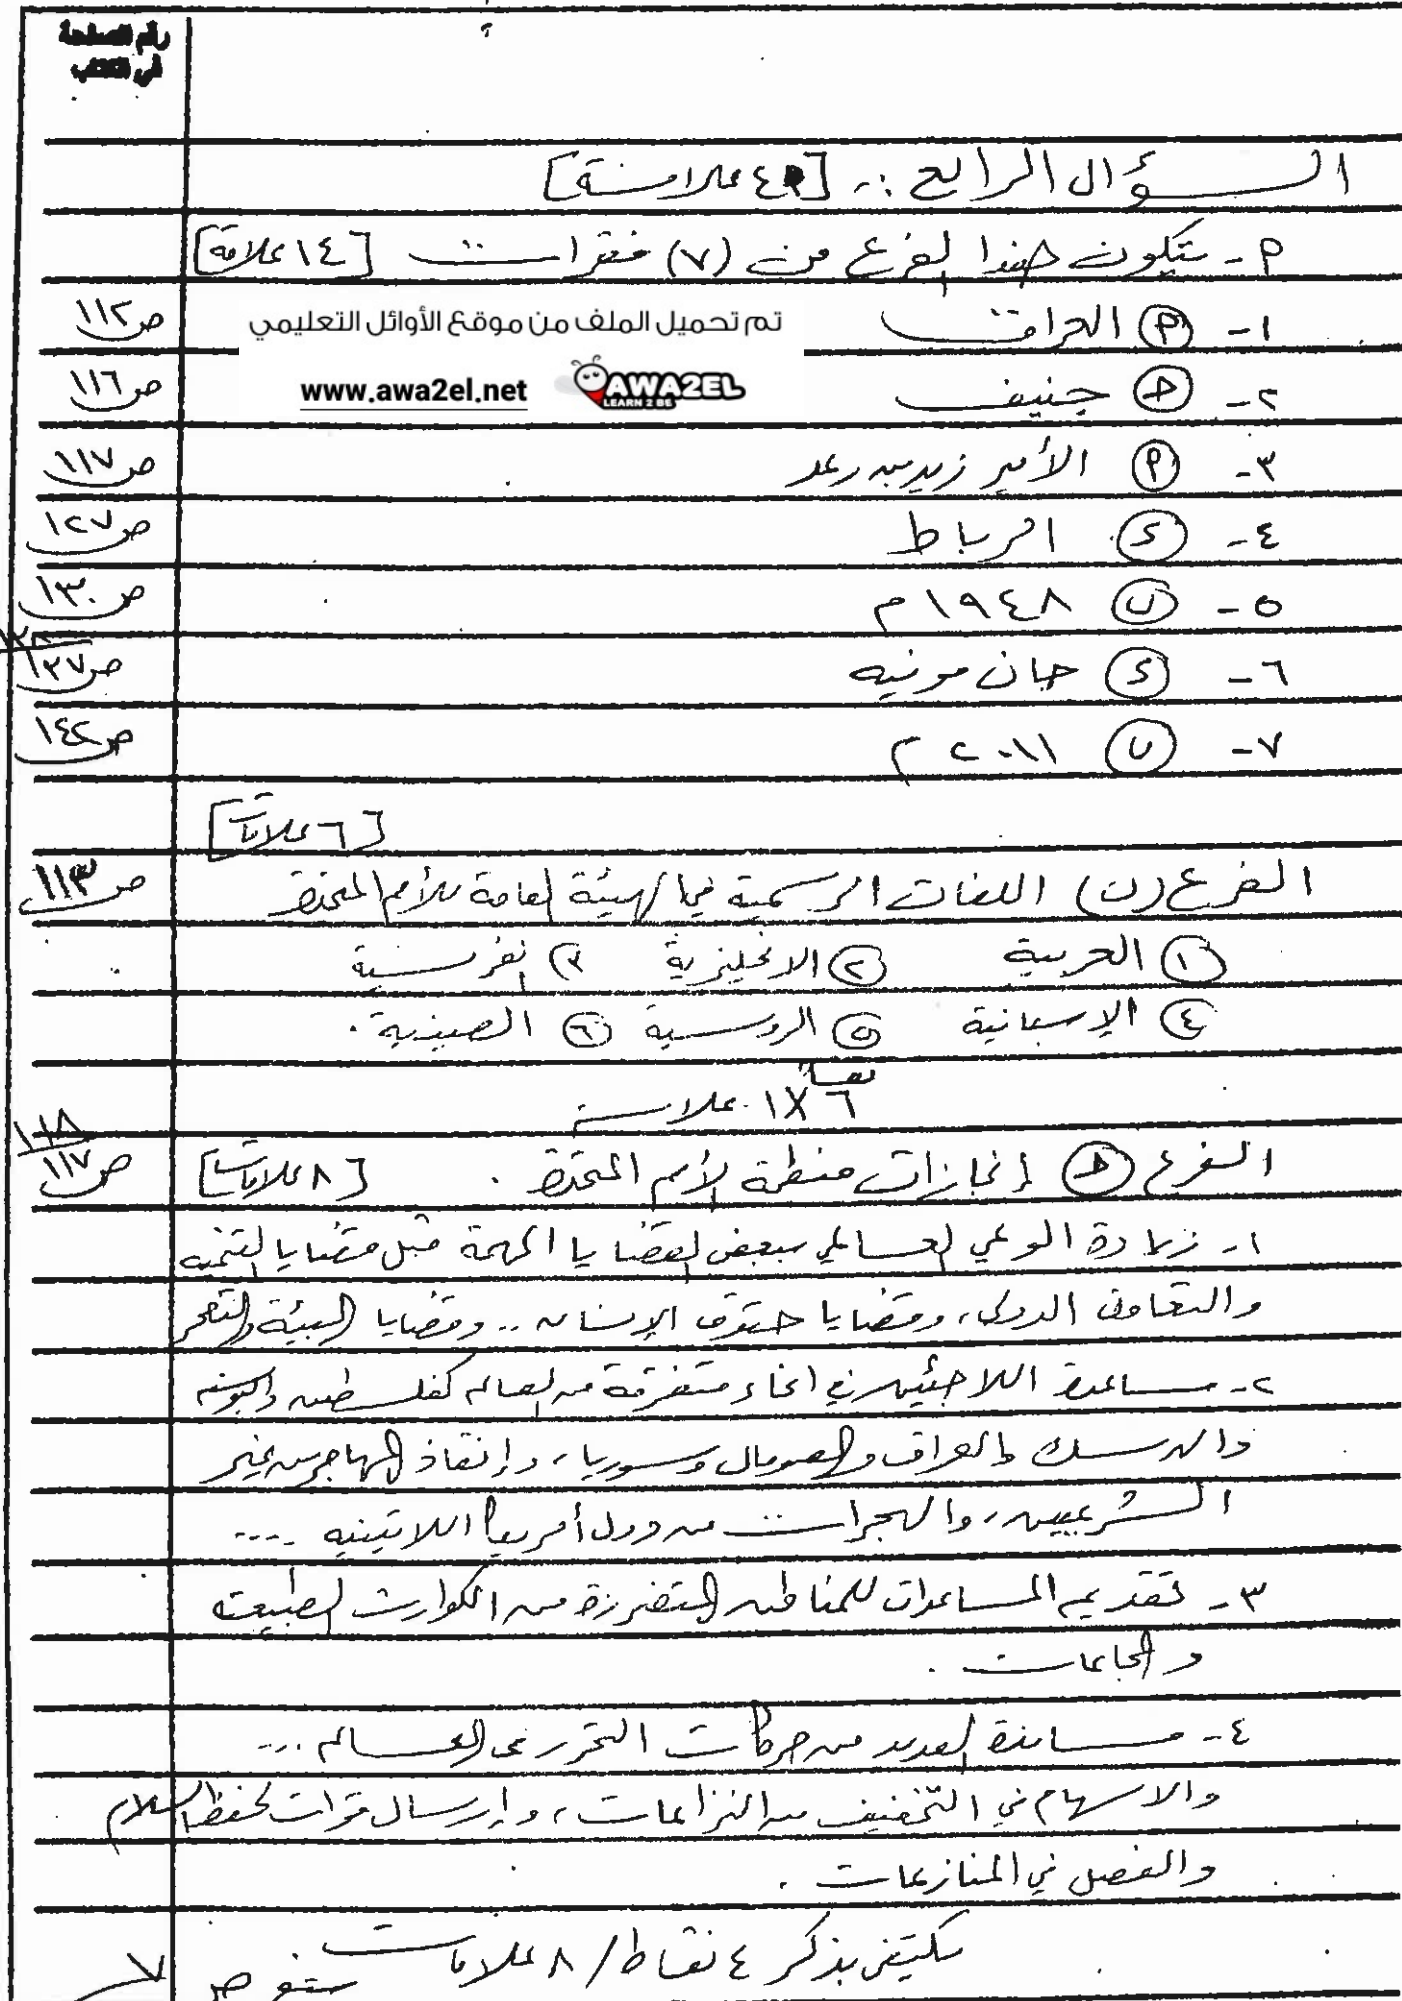 رقم الصفحة
في الكتاب
السؤال الرابع :- [ علامة]
P- يتكون هذا الفرع من (٧) فقرات [١٤ علامة]
١- (P) العراق ص١١٢
تم تحميل الملف من موقع الأوائل التعليمي
www.awa2el.net AWA2EL
LEARN 2 BE
٢- (ج) جنيف ص١١٦
٣- (P) الأمير زيد بن رعد ص١١٧
٤- (د) الرباط ص١٢٧
٥- (ب) ١٩٤٨م ص١٣٠
٦- (د) جان مونيه ص١٣٧
٧- (ب) ٢٠١١م ص١٤٢
[٦ علامات]
الفرع (ب) اللغات الرسمية في الهيئة العامة للأمم المتحدة ص١١٣
(١) العربية (٢) الانجليزية (٣) الفرنسية
(٤) الإسبانية (٥) الروسية (٦) الصينية.
٦ نقاط X ١ علامة
الفرع (ج) إنجازات منظمة الأمم المتحدة. [٨ علامات] ص١١٧ ١١٨
١- زيادة الوعي العالمي ببعض القضايا المهمة مثل قضايا التنمية
والتعاون الدولي، وقضايا حقوق الإنسان.. وقضايا البيئة والتصحر
٢- مساعدة اللاجئين في انحاء متفرقة من العالم كفلسطين والبوسنة
والهرسك والعراق والصومال وسوريا، وإنقاذ المهاجرين غير
الشرعيين، والهجرات من دول أمريكا اللاتينية ....
٣- تقديم المساعدات للمناطق المتضررة من الكوارث الطبيعية
والمجاعات.
٤- مساندة العديد من حركات التحرر في العالم ...
والاسهام في التخفيف من النزاعات، وإرسال قوات لحفظ السلام
والفصل في المنازعات.
يكتفى بذكر ٤ نقاط / ٨ علامات.
يتبع ص ٧